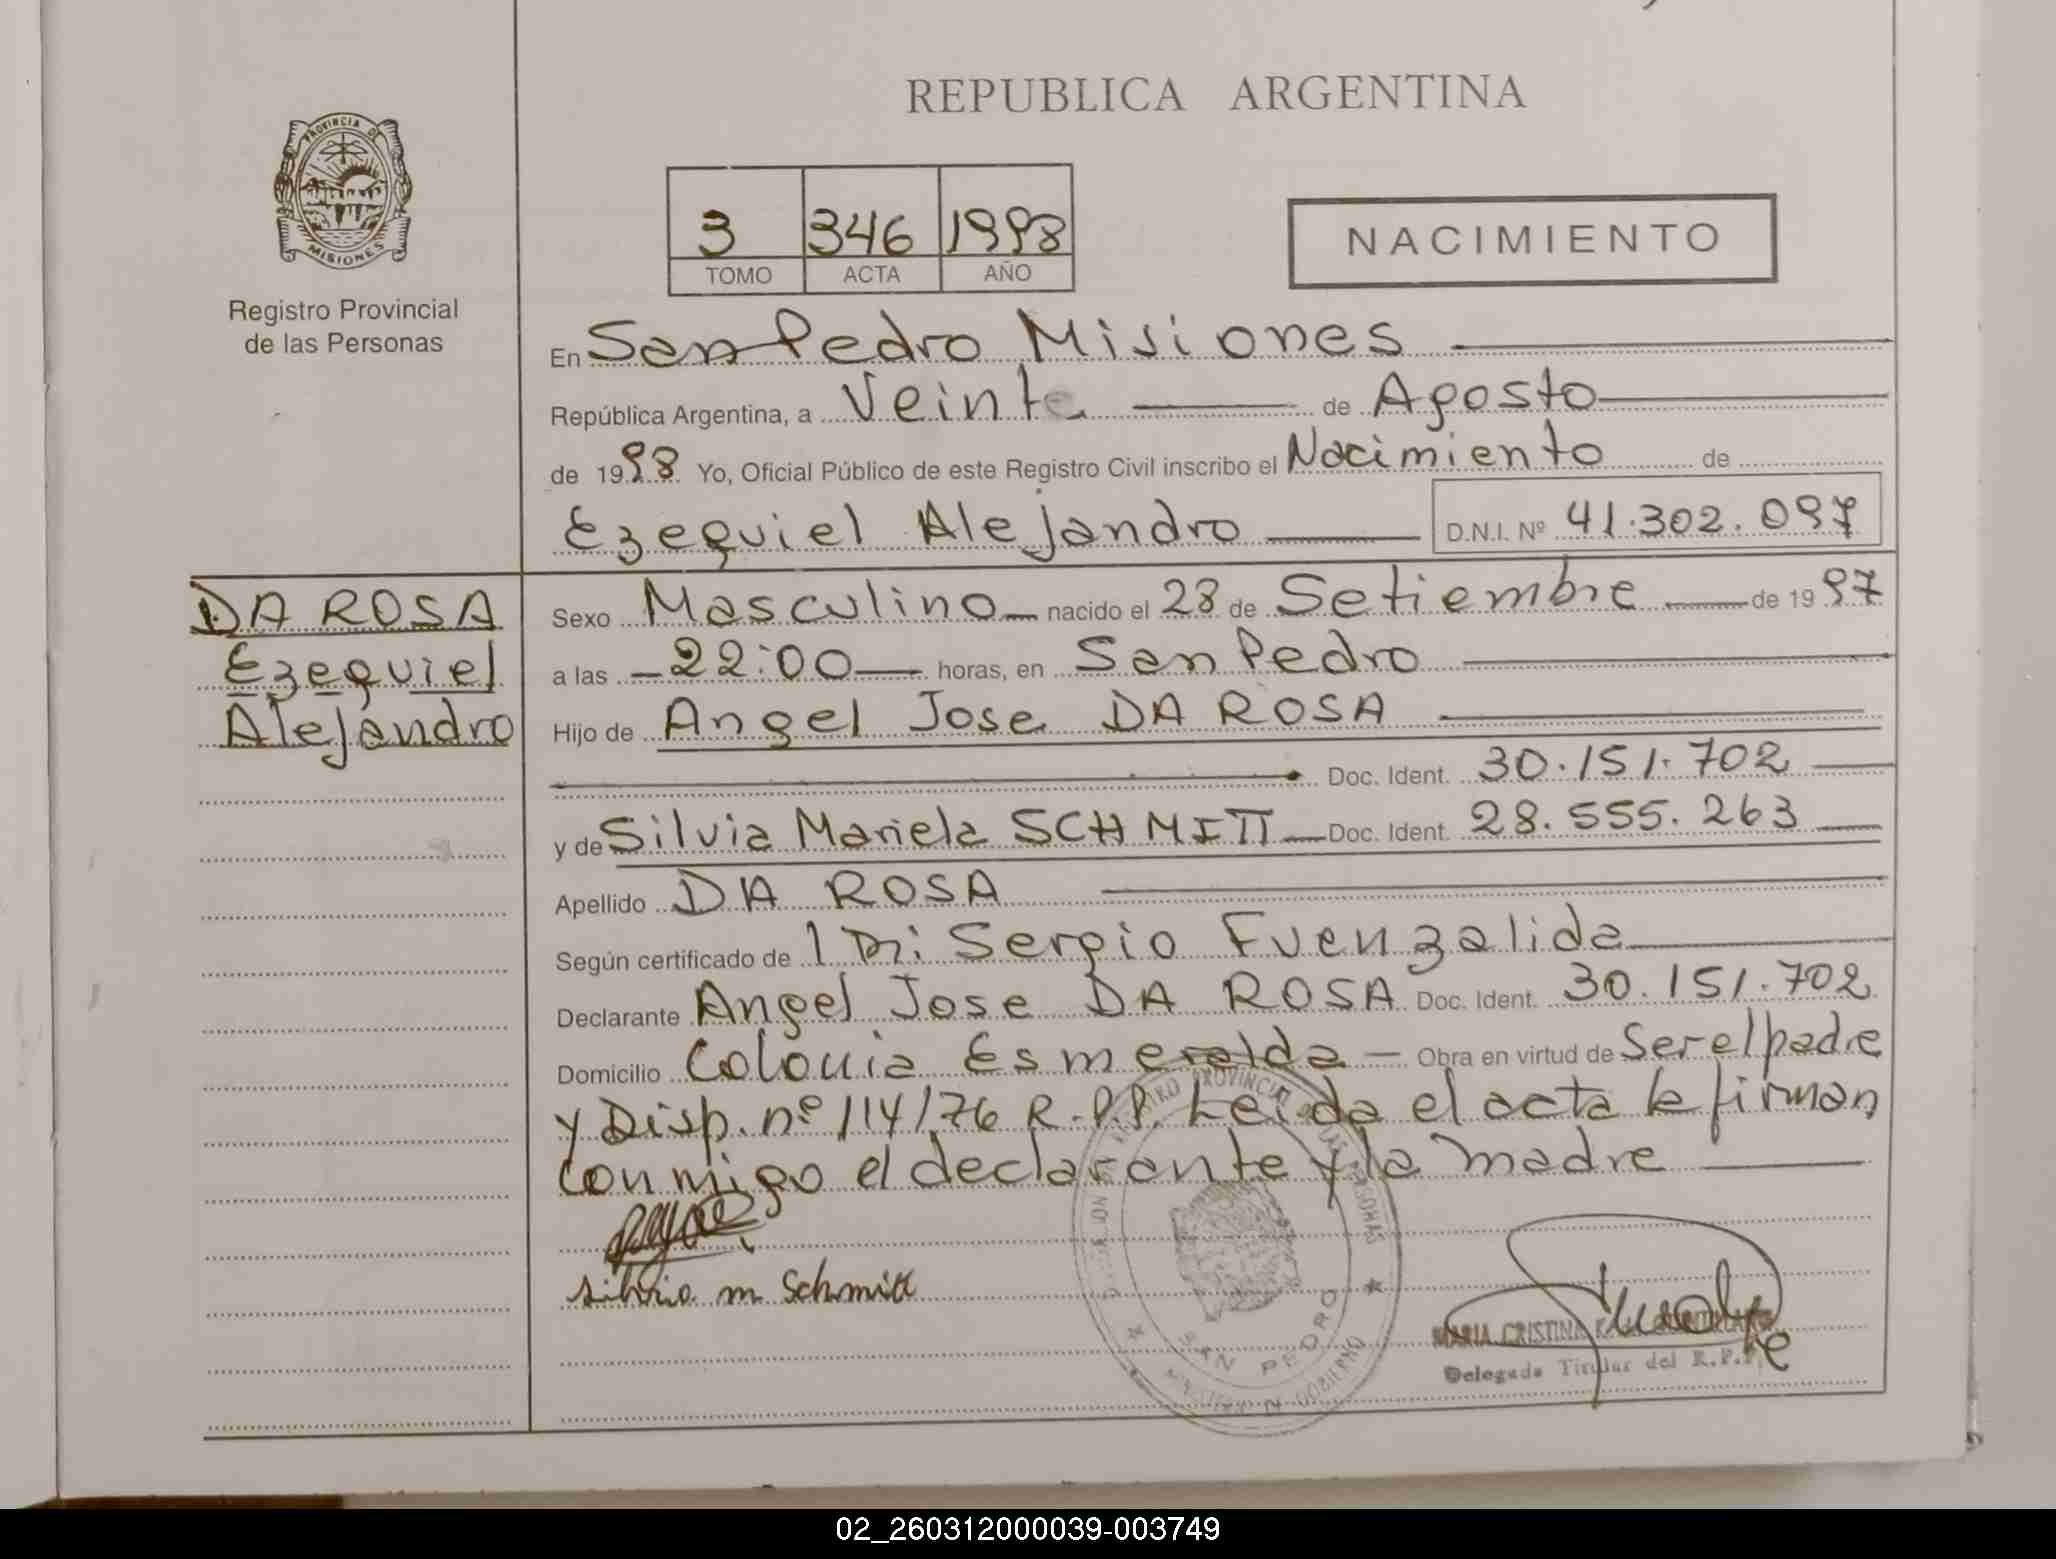 REPUBLICA ARGENTINA
PROVINCIA DE
MISIONES
Registro Provincial
de las Personas
3 346 1998
TOMO ACTA AÑO
NACIMIENTO
En San Pedro Misiones
República Argentina, a Veinte de Agosto
de 1998 Yo, Oficial Público de este Registro Civil inscribo el Nacimiento de
Ezequiel Alejandro D.N.I. Nº 41.302.097
DA ROSA
Ezequiel
Alejandro
Sexo Masculino nacido el 28 de Setiembre de 1997
a las 22:00 horas, en San Pedro
Hijo de Angel Jose DA ROSA
Doc. Ident. 30.151.702
y de Silvia Mariela SCHMITT Doc. Ident. 28.555.263
Apellido DA ROSA
Según certificado de 1 Dr: Sergio Fuenzalida
Declarante Angel Jose DA ROSA Doc. Ident. 30.151.702
Domicilio Colonia Esmeralda Obra en virtud de Ser el padre
y Disp. nº 114/76 R.P.P. Leida el acta la firman
conmigo el declarante y la madre
silvia m Schmitt
SAN PEDRO
MARIA CRISTINA
Delegada Titular del R.P.P.
02_260312000039-003749